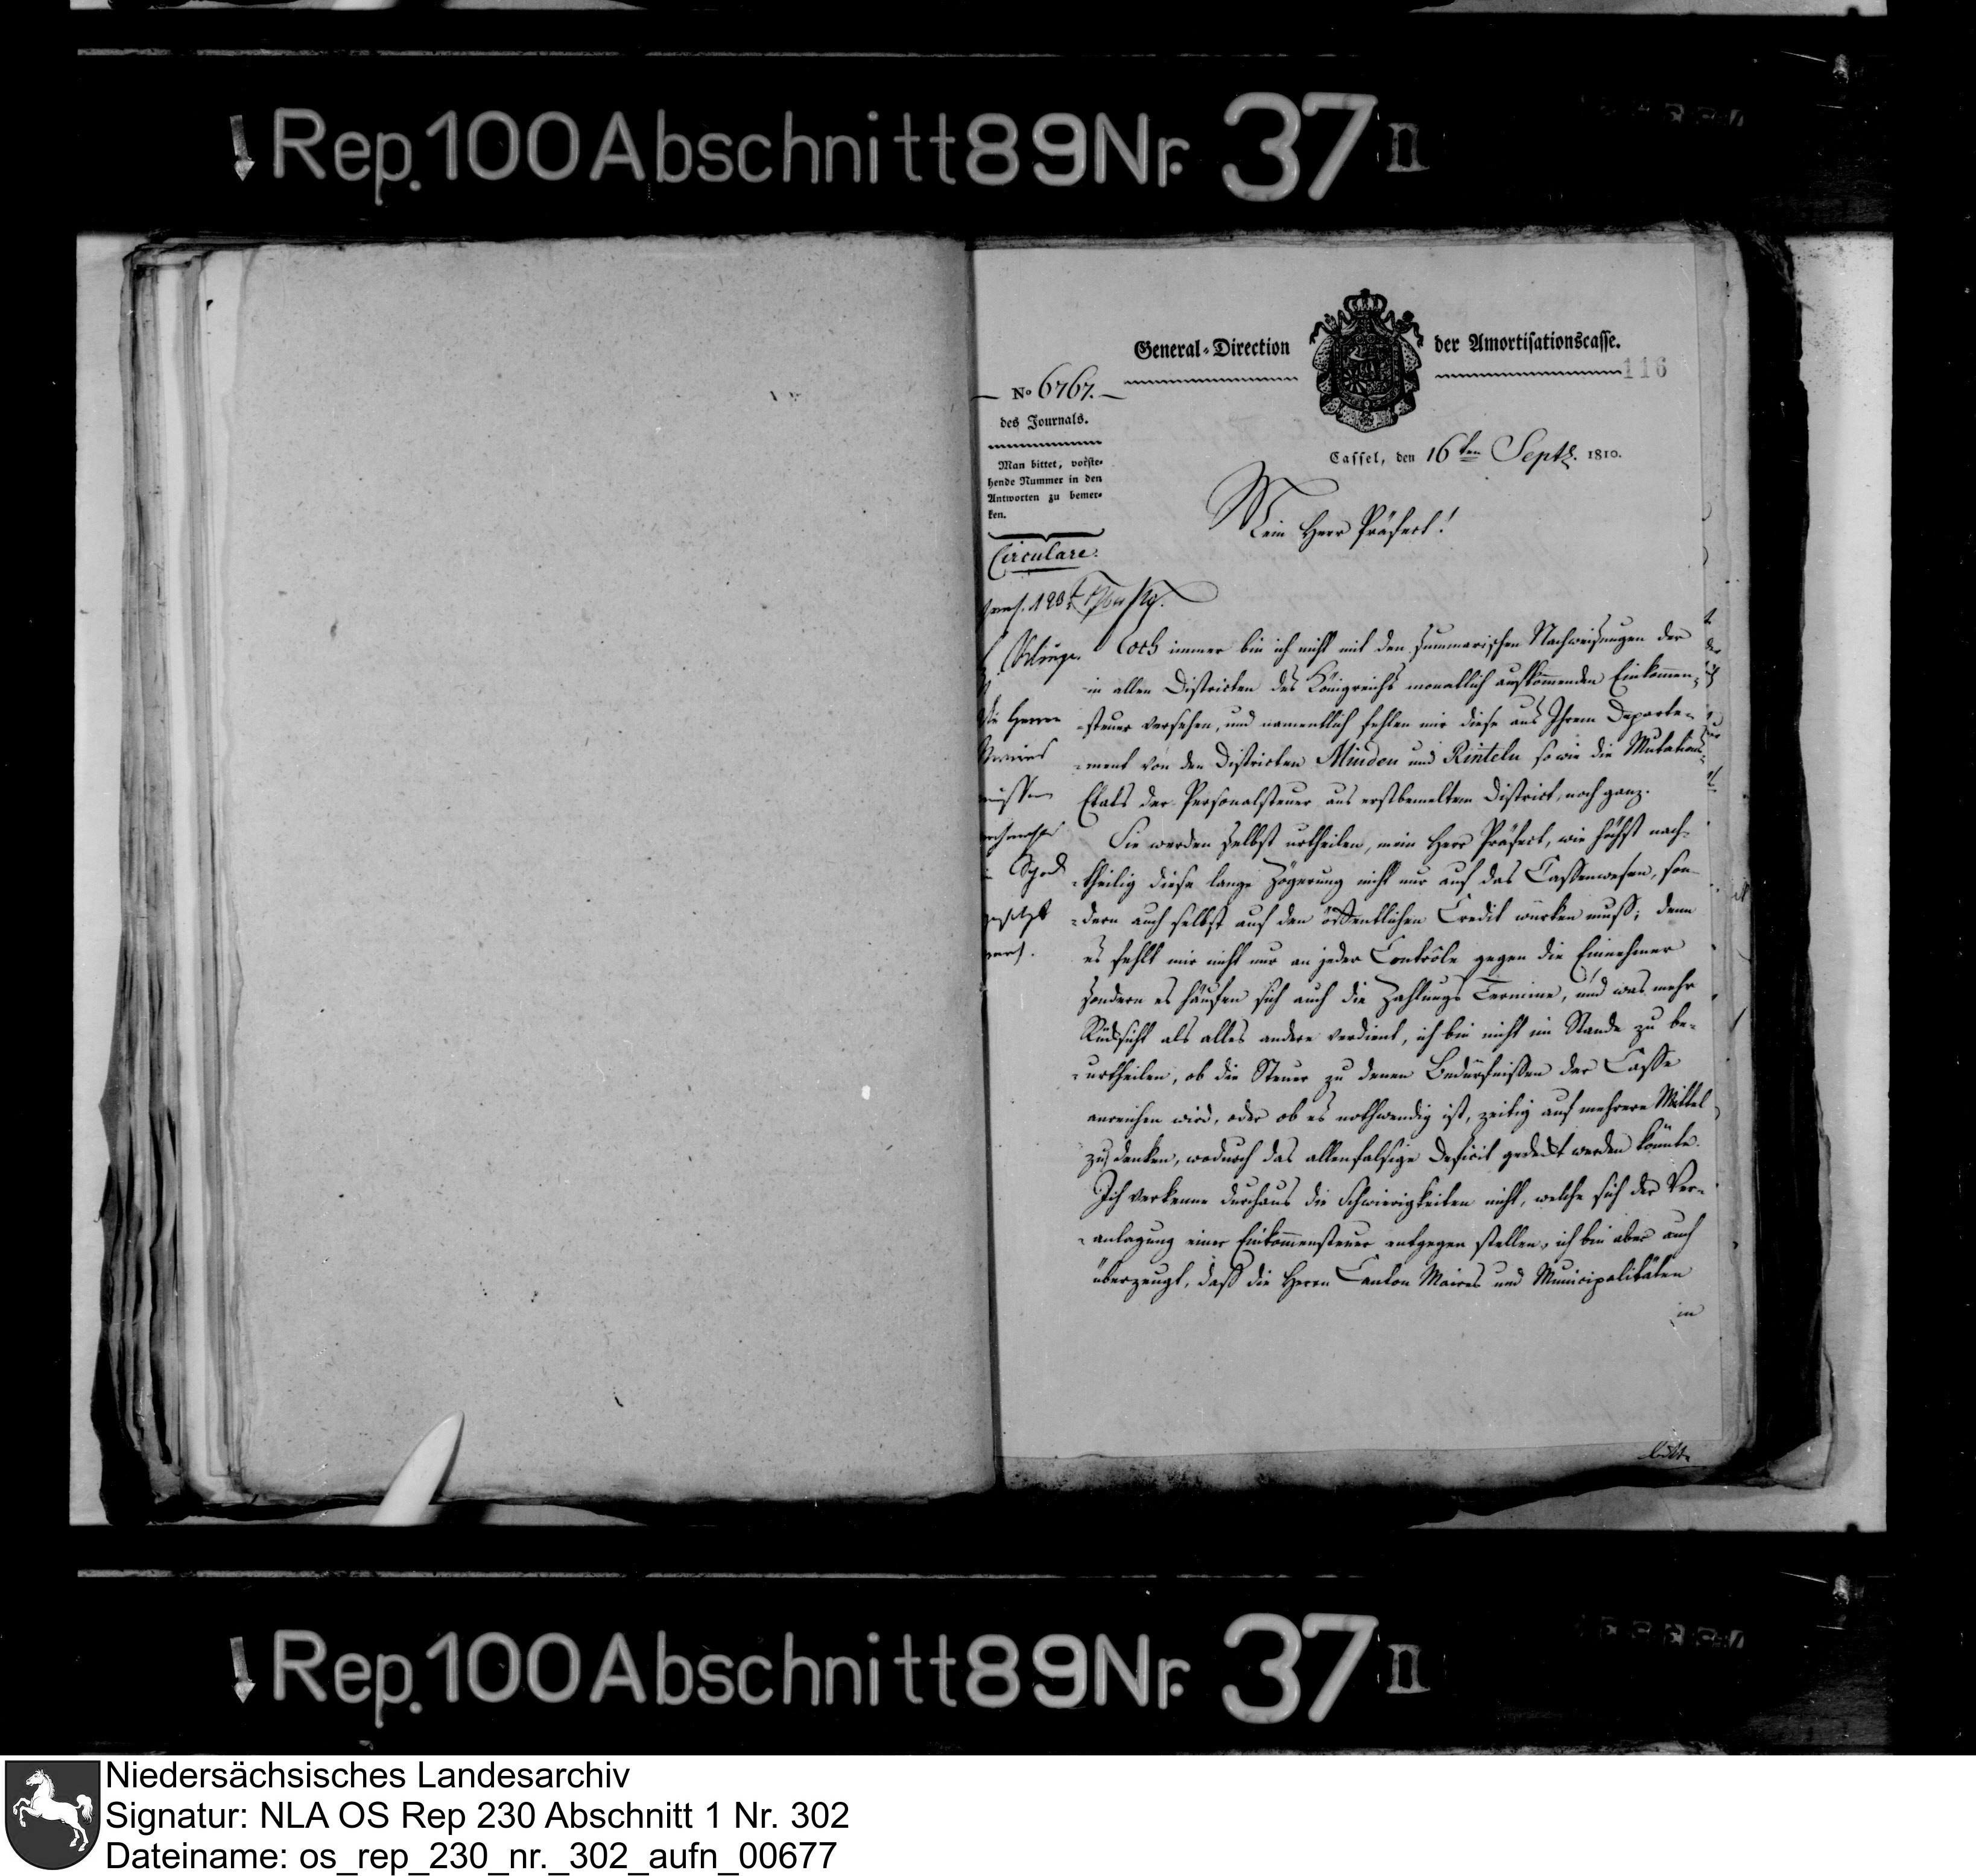 Rep. 100 Abschnitt 89 Nr. 37 II
General-Direction der Amortisationscasse.
116
No 6767.
des Journals.
Man bittet, vorste-
hende Nummer in den
Antworten zu bemer-
ken.
Cassel, den 16ten Septbr. 1810.
Mein Herr Präfect!
Circulare.
Noch immer bin ich nicht mit den summarischen Nachweisungen der
in allen Districten des Königreichs monatlich aufkommenden Einkommen-
-steuer versehen, und namentlich fehlen mir diese aus Ihrem Departe-
-ment von den Districten Minden und Rinteln so wie die Mutations-
Etats der Personalsteuer aus erstbemeltem District, noch ganz.
Sie werden selbst urtheilen, mein Herr Präfect, wie höchst nach-
-theilig diese lange Zögerung nicht nur auf das Cassenwesen, son-
-dern auch selbst auf den öffentlichen Credit würken muß; denn
es fehlt mir nicht nur an jeder Contrôle gegen die Einnehmer
sondern es häufen sich auch die Zahlungs Termine, und was mehr
Rücksicht als alles andere verdient, ich bin nicht im Stande zu be-
-urtheilen, ob die Steuer zu denen Bedürfnißen der Casse
anreichen wird, oder ob es nothwendig ist, zeitig auf mehrere Mittel
zu denken, wodurch das allenfalsige Deficit gedeckt werden könnte.
Ich verkenne durchaus die Schwierigkeiten nicht, welche sich der Ver-
-anlagung einer Einkommensteuer entgegen stellen, ich bin aber auch
überzeugt, daß die Herrn Canton Maires und Municipalitäten
in
Rep. 100 Abschnitt 89 Nr. 37 II
Niedersächsisches Landesarchiv
Signatur: NLA OS Rep 230 Abschnitt 1 Nr. 302
Dateiname: os_rep_230_nr._302_aufn_00677